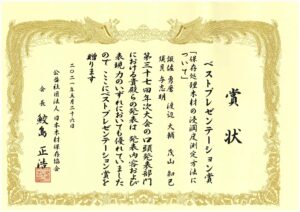 賞状
ベストプレゼンテーション賞
「保存処理木材の浸潤度測定方法に
ついて」
第三十七回年次大会の口頭発表部門
における貴殿らの発表は発表内容および
表現力のいずれにおいても優れていました
ので ここにベストプレゼンテーション賞を
贈ります
二〇二一年五月二十六日
公益社団法人 日本木材保存協会
会長 鮫島 正浩